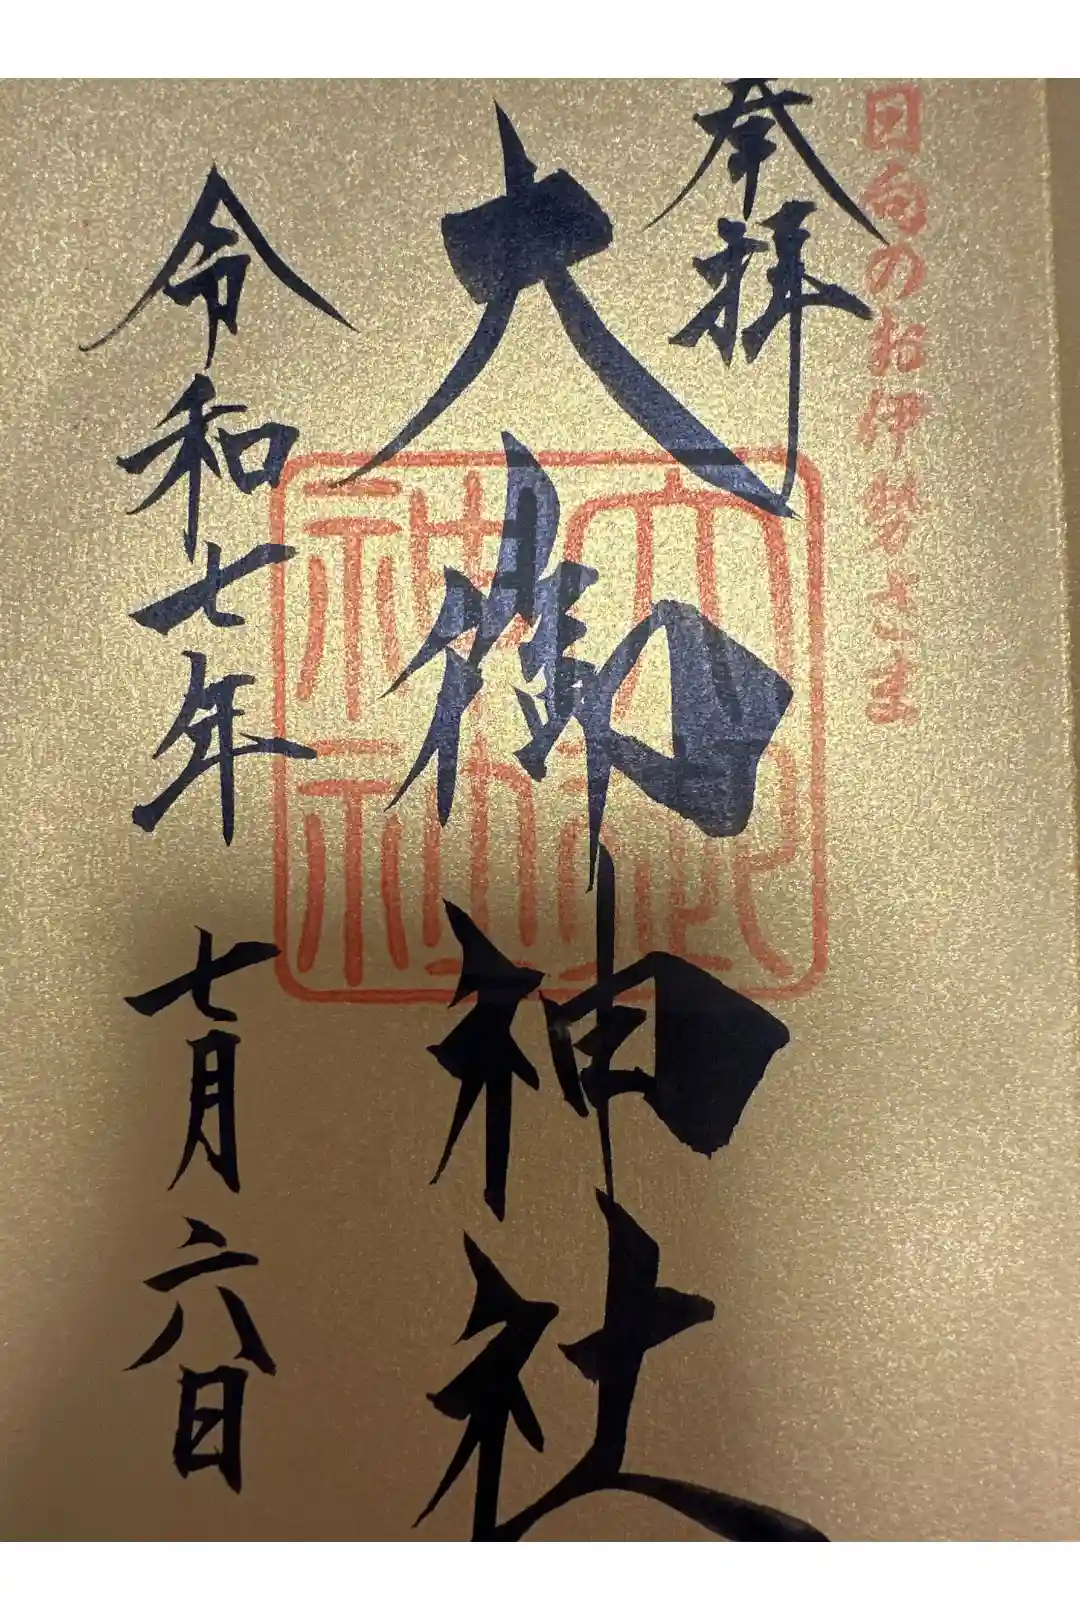 日向のお伊勢さま
奉拝
大御神社
令和七年 七月六日
大御神社